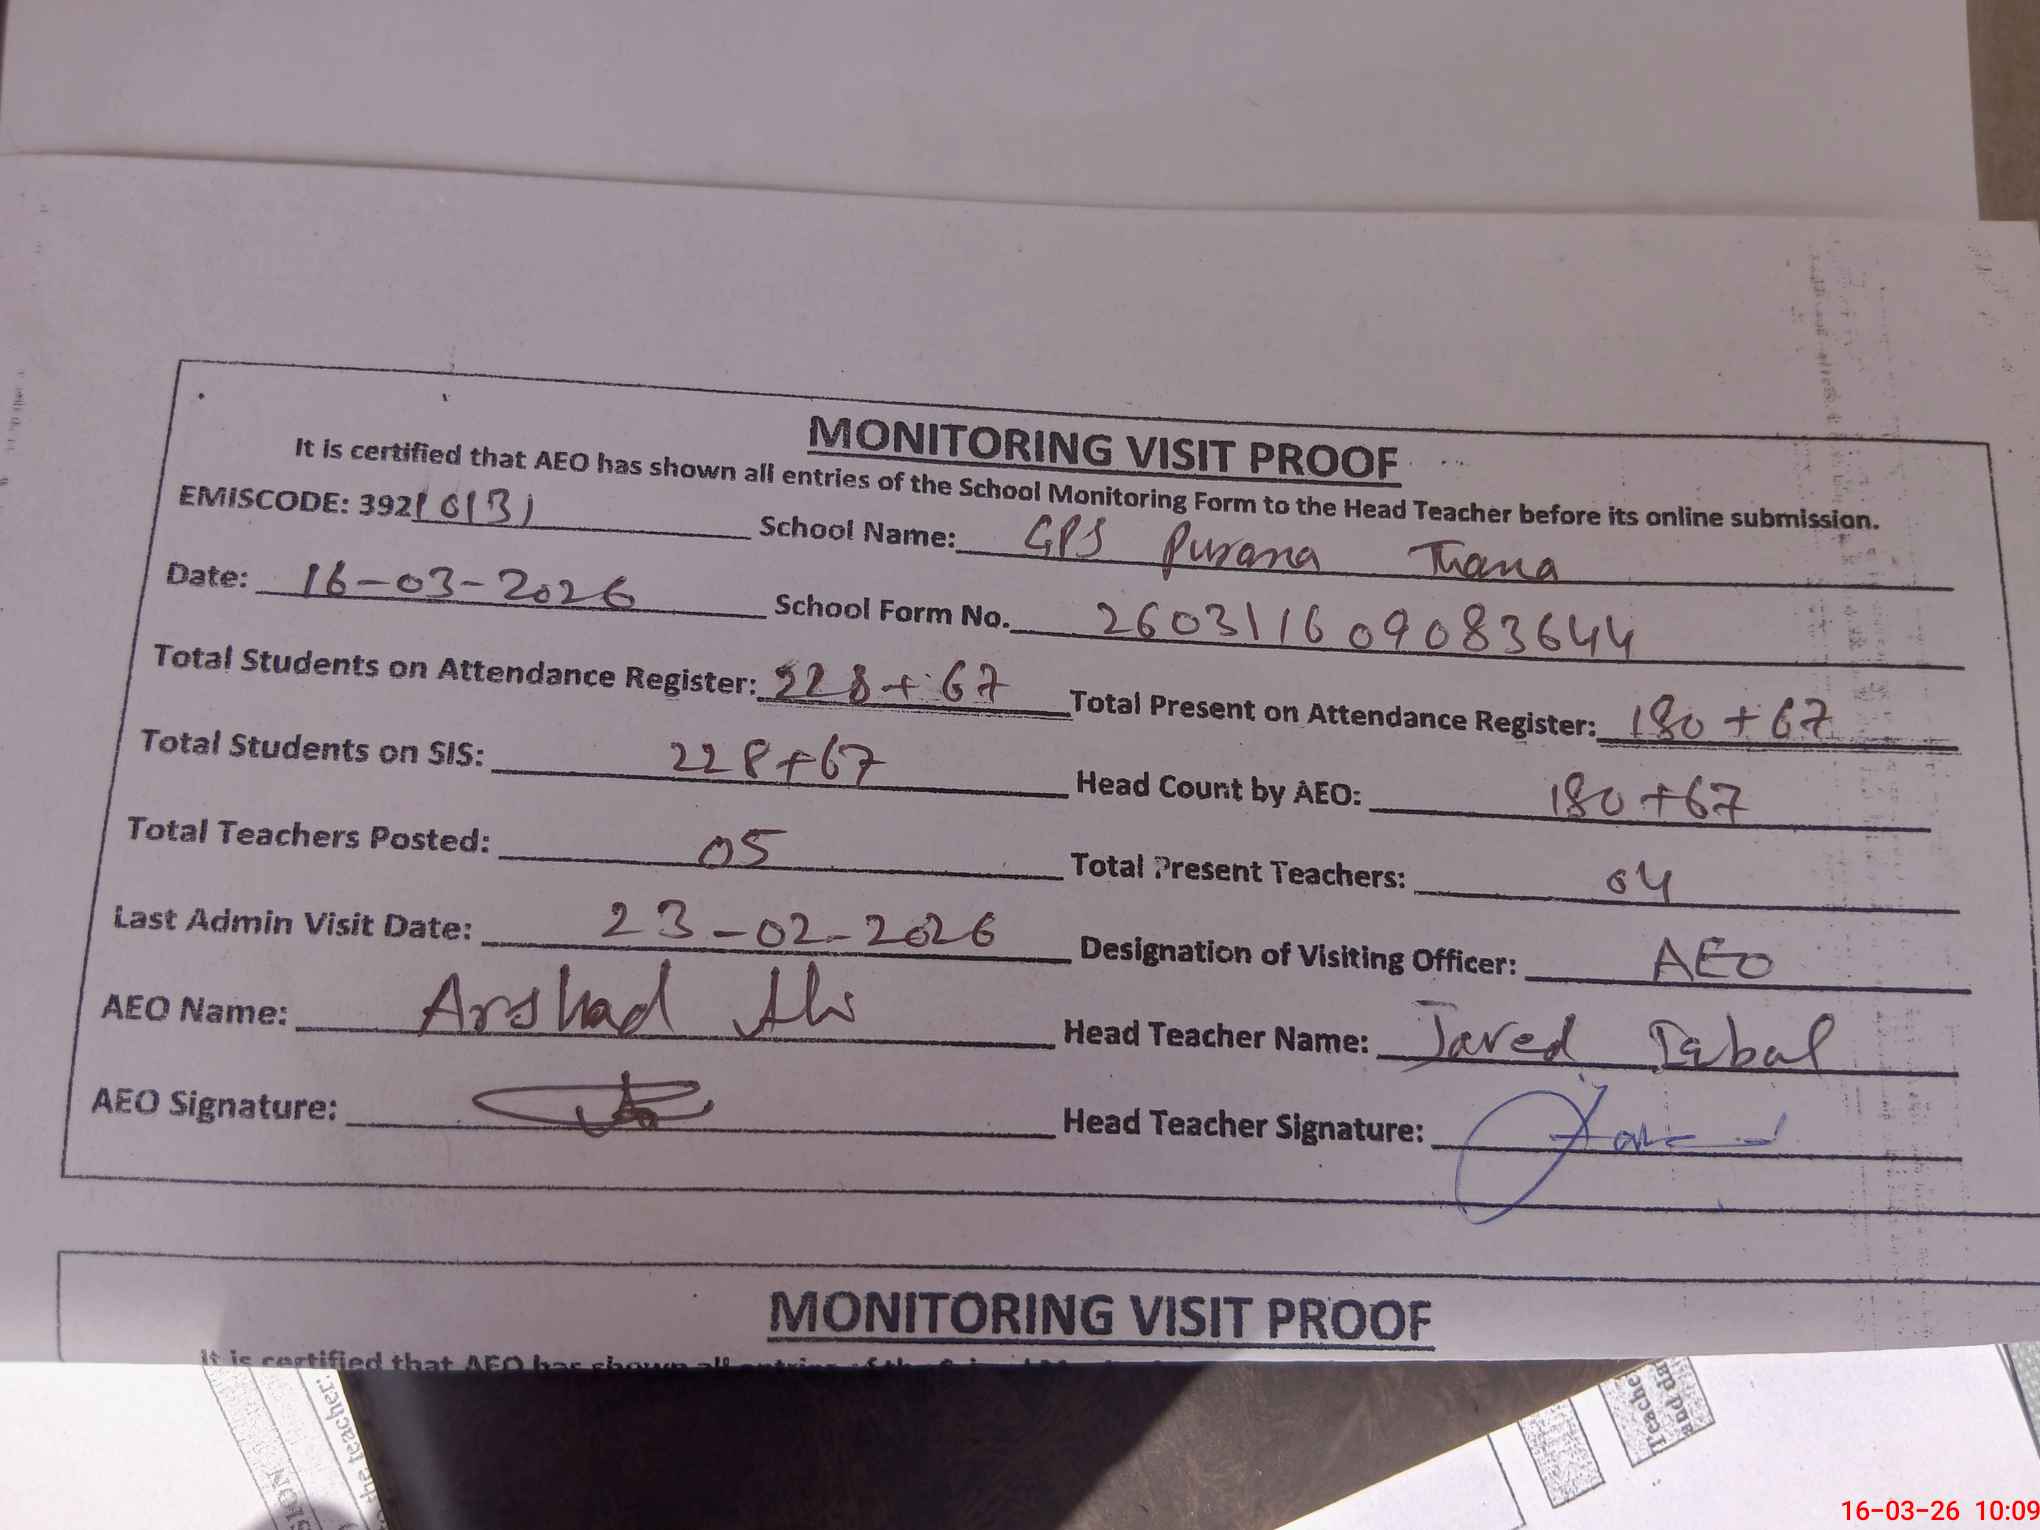 MONITORING VISIT PROOF
It is certified that AEO has shown all entries of the School Monitoring Form to the Head Teacher before its online submission.
EMISCODE: 39210131 School Name: GPS Purana Thana
Date: 16-03-2026 School Form No. 260311609083644
Total Students on Attendance Register: 228+67 Total Present on Attendance Register: 180+67
Total Students on SIS: 228+67 Head Count by AEO: 180+67
Total Teachers Posted: 05 Total Present Teachers: 04
Last Admin Visit Date: 23-02-2026 Designation of Visiting Officer: AEO
AEO Name: Arshad Ali Head Teacher Name: Javed Iqbal
AEO Signature: Head Teacher Signature:
MONITORING VISIT PROOF
It is certified that AEO has shown all entries of the
the teacher:
Teache
and da
16-03-26 10:09